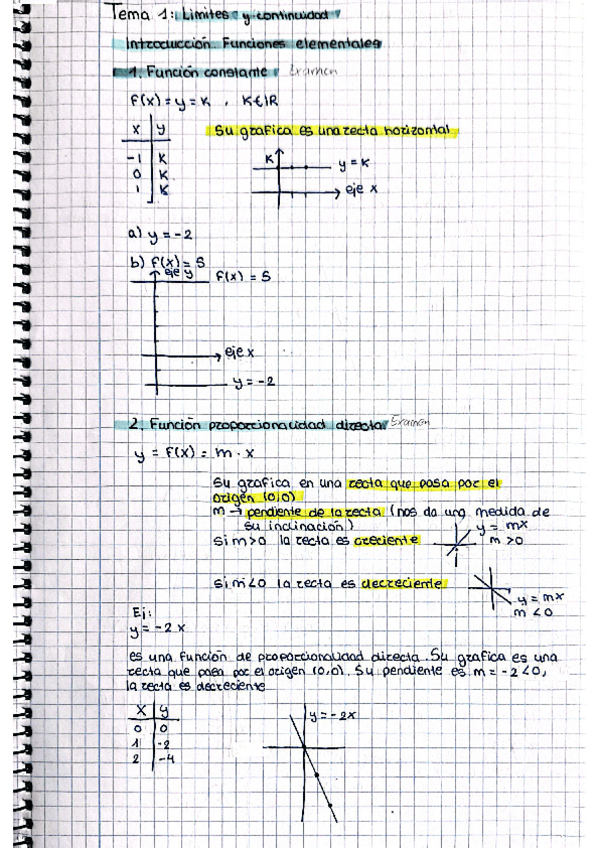 Tema 1: Limites y continuidad
Introducción. Funciones elementales
1. Función constante Examen
f(x) = y = K , K∈IR
x y
Su grafica es una recta horizontal
-1 K
0 K
1 K
K
y = K
eje x
a) y = -2
b) f(x) = 5
eje y
f(x) = 5
eje x
y = -2
2. Función proporcionalidad directa Examen
y = f(x) = m · x
Su grafica en una recta que pasa por el
origen (0,0)
m → pendiente de la recta (nos da una medida de
su inclinación)
si m>0 la recta es creciente
y = mx
m >0
si m<0 la recta es decreciente
y = mx
m <0
Ej:
y = -2x
es una función de proporcionalidad directa. Su grafica es una
recta que pasa por el origen (0,0). Su pendiente es m = -2 <0,
la recta es decreciente
x y
0 0
1 -2
2 -4
y = -2x